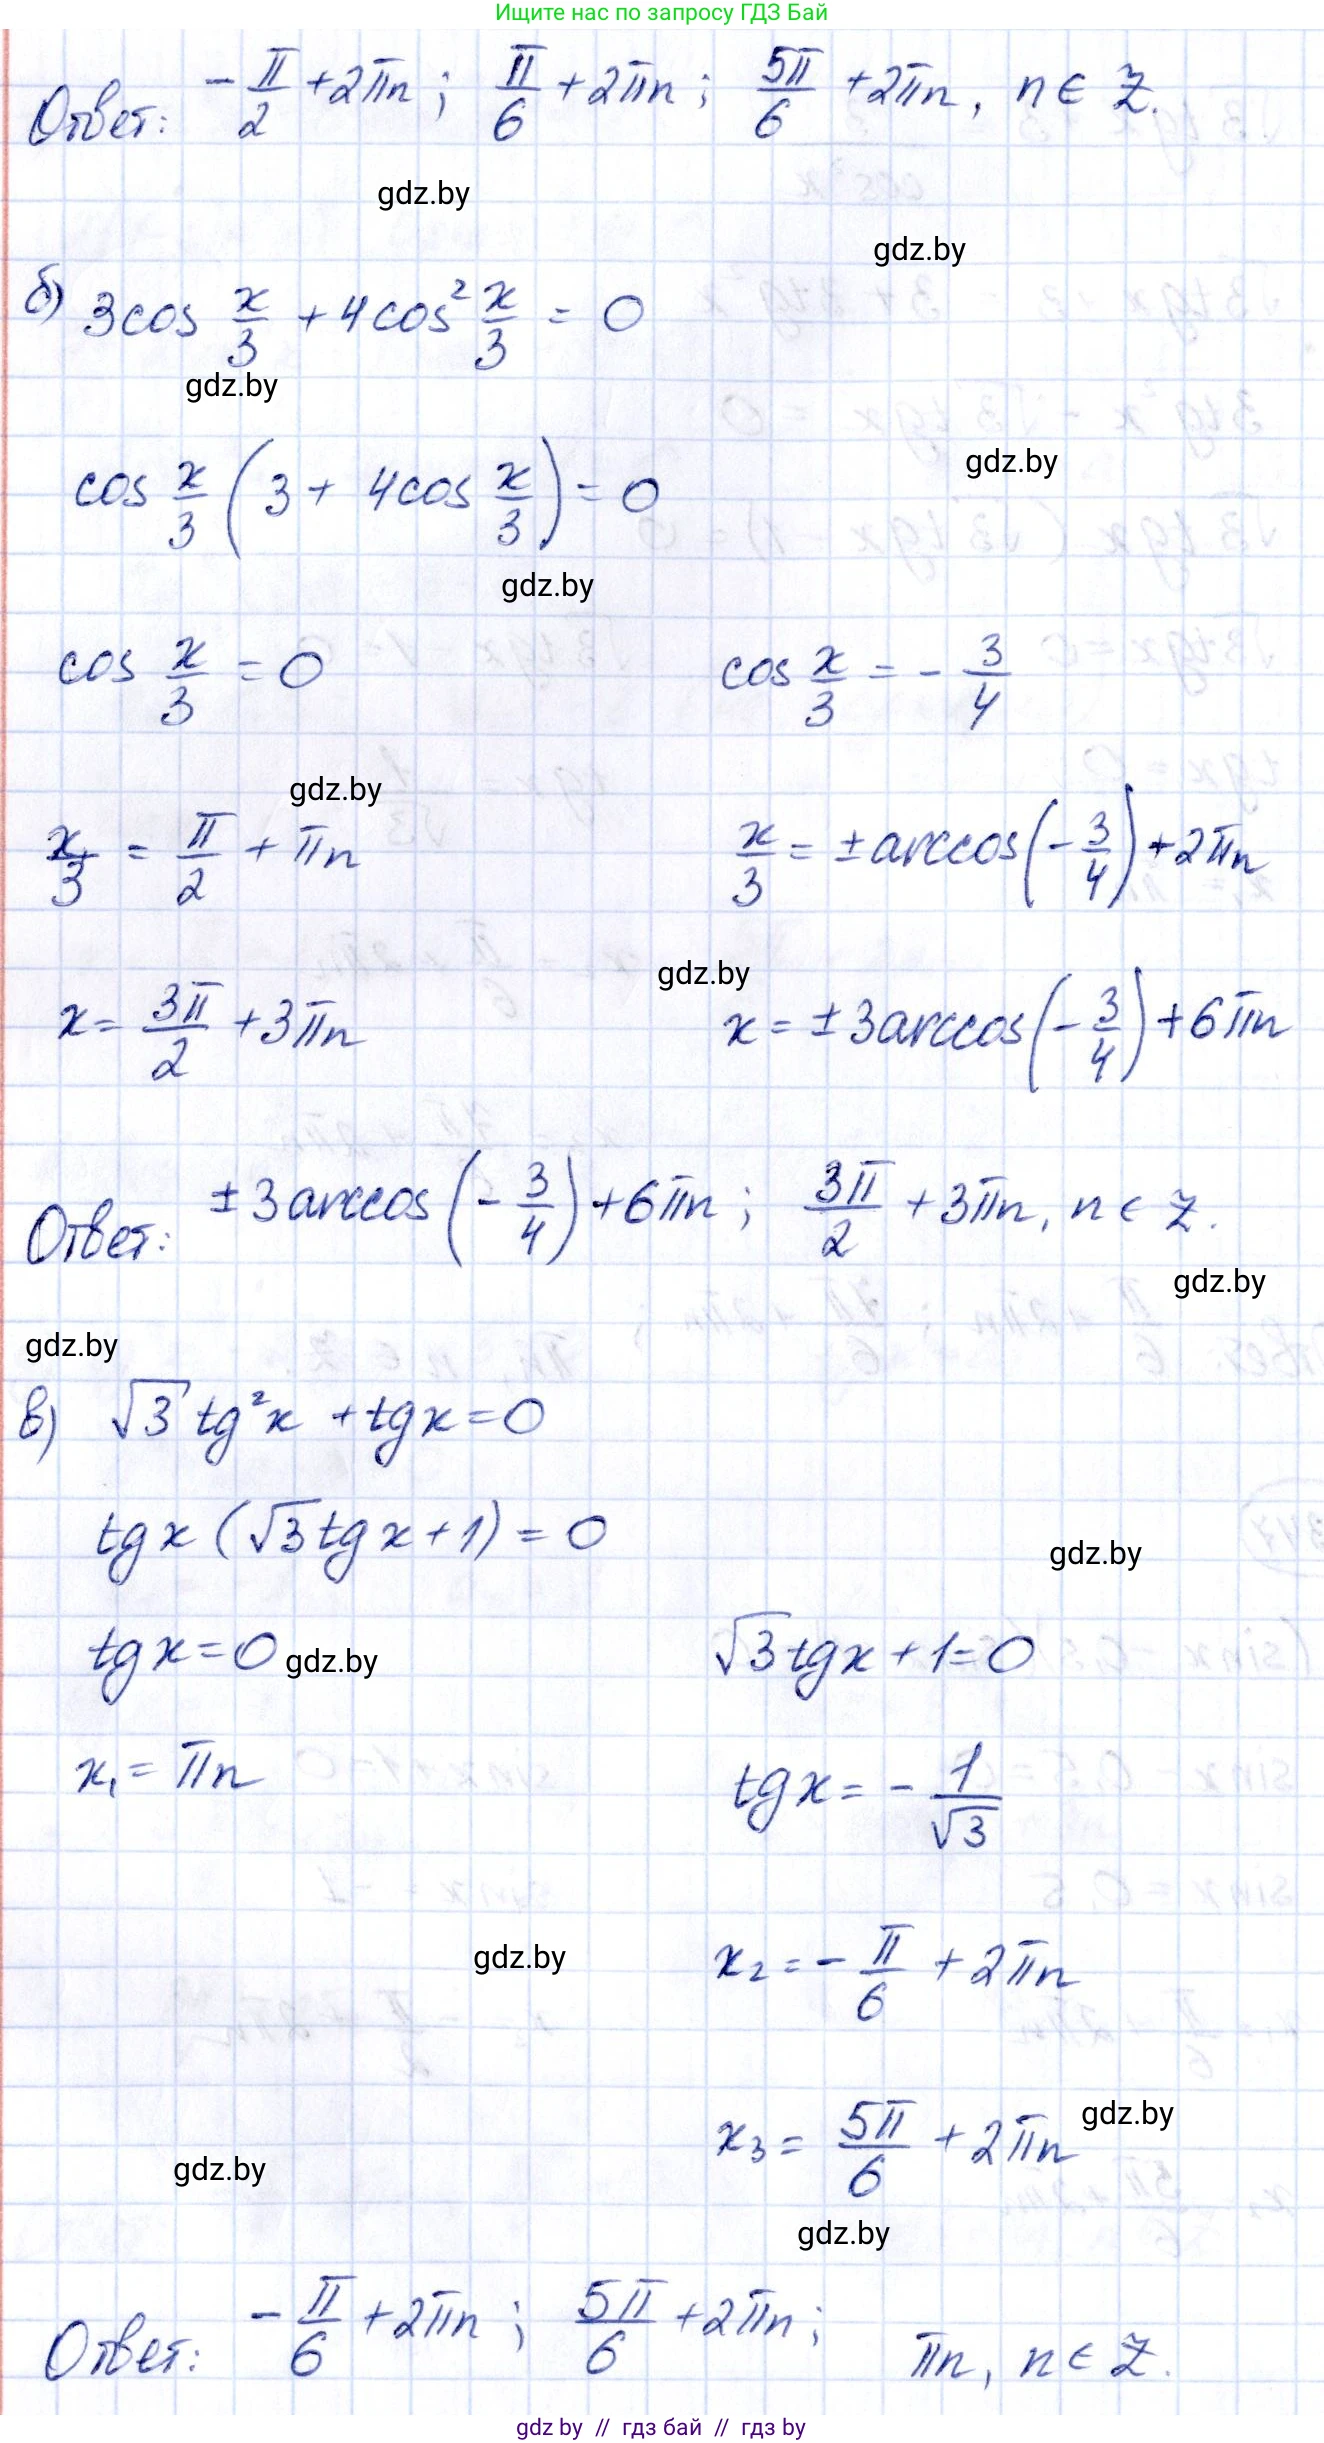 Ищите нас по запросу ГДЗ Бай
Ответ: -π/2 + 2πn; π/6 + 2πn; 5π/6 + 2πn, n ∈ Z.
gdz.by
gdz.by
б) 3cos x/3 + 4cos² x/3 = 0
gdz.by
gdz.by
cos x/3 (3 + 4cos x/3) = 0
gdz.by
cos x/3 = 0    cos x/3 = -3/4
gdz.by
x/3 = π/2 + πn    x/3 = ± arccos(-3/4) + 2πn
gdz.by
x = 3π/2 + 3πn    x = ± 3arccos(-3/4) + 6πn
Ответ: ± 3arccos(-3/4) + 6πn; 3π/2 + 3πn, n ∈ Z.
gdz.by
gdz.by
в) √3 tg²x + tgx = 0
tgx (√3 tgx + 1) = 0
gdz.by
tgx = 0    √3 tgx + 1 = 0
gdz.by
x₁ = πn    tgx = -1/√3
gdz.by
x₂ = -π/6 + 2πn
gdz.by
x₃ = 5π/6 + 2πn
gdz.by
gdz.by
Ответ: -π/6 + 2πn; 5π/6 + 2πn; πn, n ∈ Z.
gdz by // гдз бай // гдз by